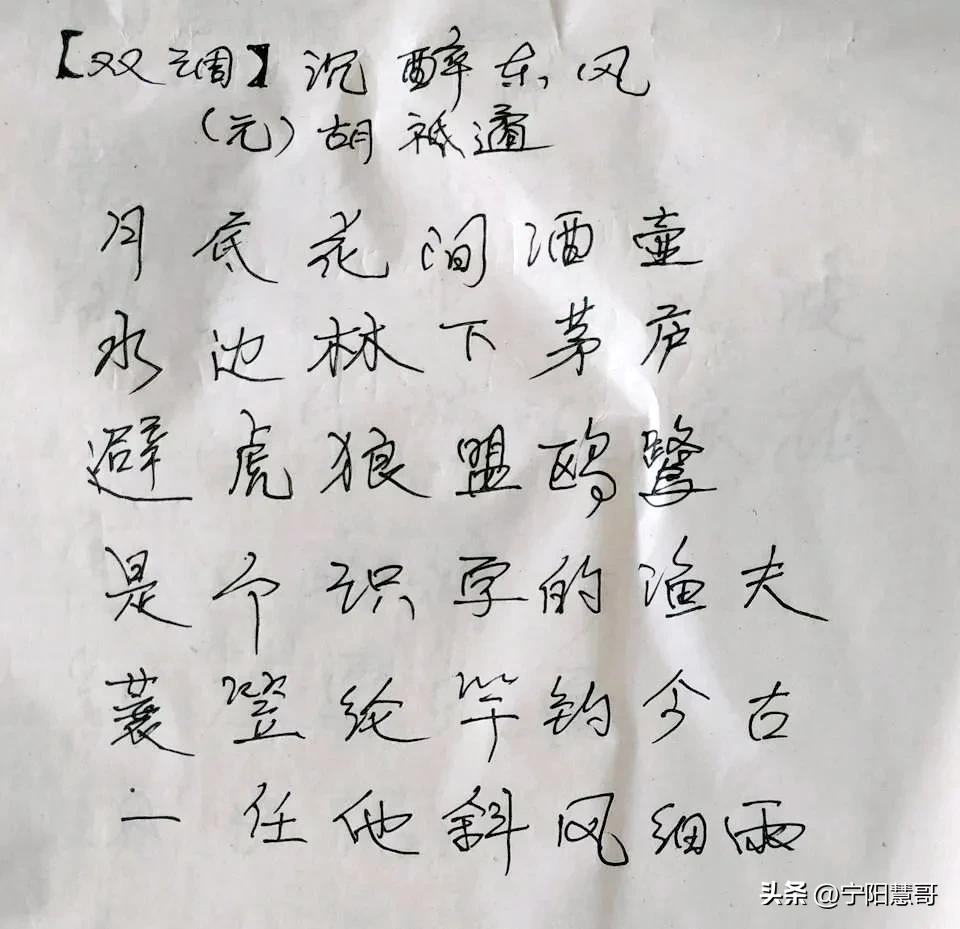 【双调】沉醉东风
(元)胡祗遹
月底花间酒壶
水边林下茅庐
避虎狼盟鸥鹭
是个识字的渔夫
蓑笠纶竿钓今古
一任他斜风细雨
头条 @宁阳慧哥